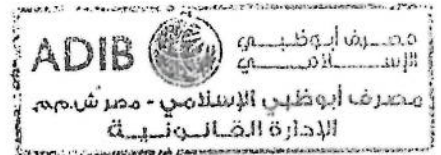 ADIB
مصرف أبوظبي
الإسلامي
مصرف أبوظبي الإسلامي - مصر ش.م.م
الإدارة القانونية